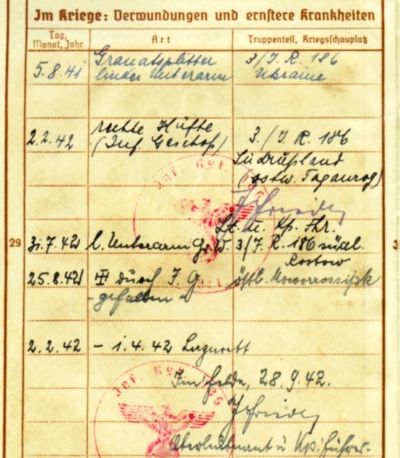 Im Kriege: Verwundungen und ernstere Krankheiten
Tag, Monat, Jahr Art Truppenteil, Kriegsschauplatz
5.8.41 Granatsplitter 3/J.R. 186
linker Unterarm Ukraine
2.2.42 rechte Hüfte 3./J.R. 186
(Inf. Geschoß) Südrußland
(ostw. Taganrog)
Lt. u. Kp. Fhr.
29 31.7.42 l. Unterarm 3/J.R. 186 südl.
Rostow
25.8.42 durch J.G. östl. Noworossijsk
- gefallen -
2.2.42 - 1.4.42 Lazarett
Im Felde, 28.9.42.
Oberleutnant u. Kp.führer